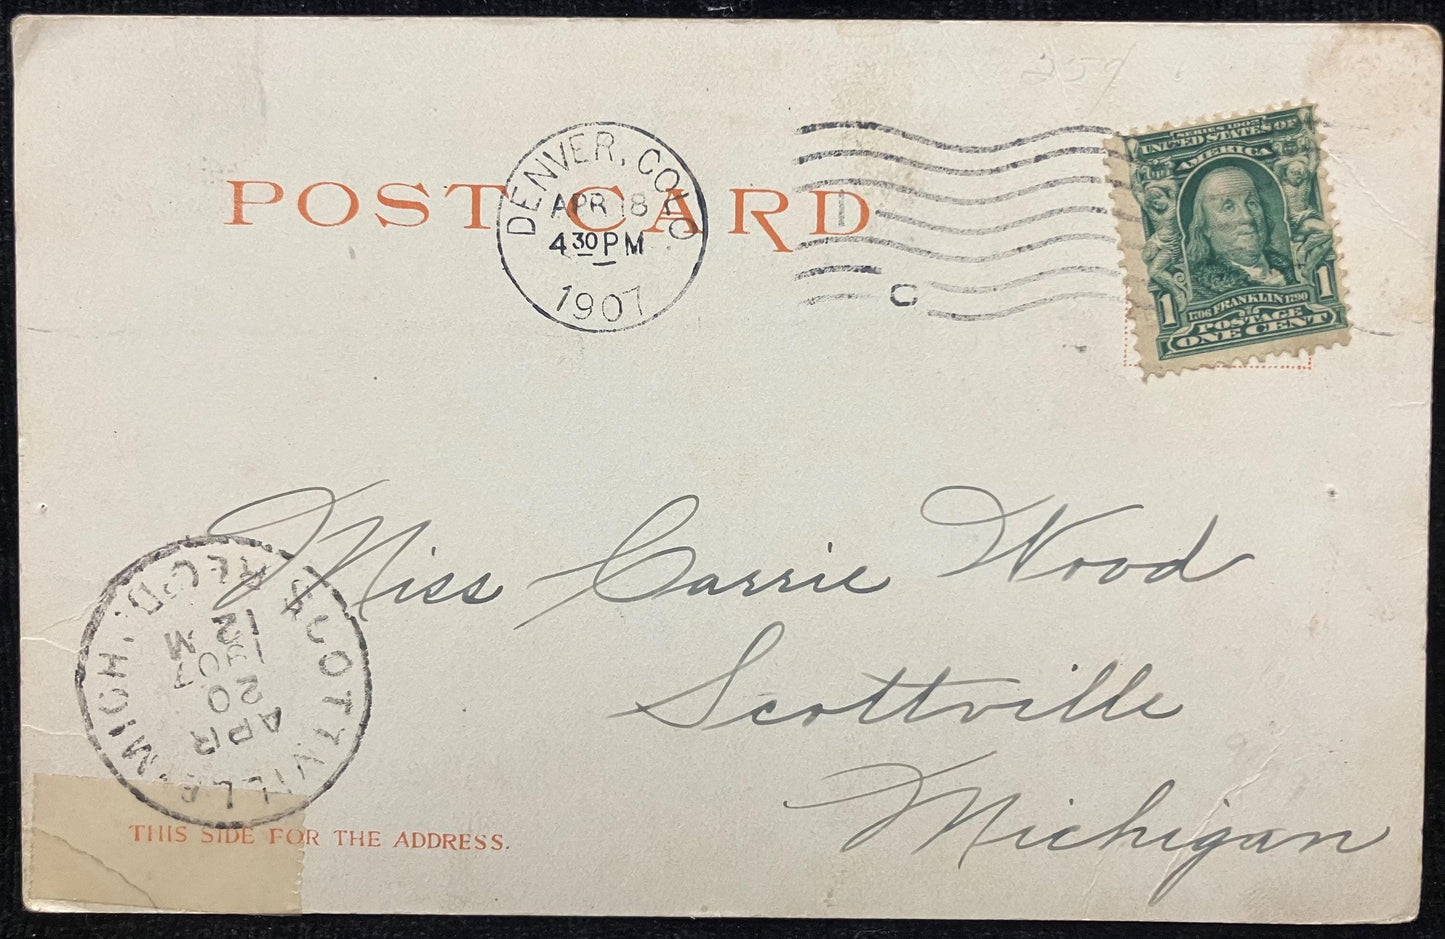 POST CARD
DENVER, COLO
APR 18
4 30 PM
1907
C
SERIES 1902
UNITED STATES OF
AMERICA
1 1
1706 FRANKLIN 1790
POSTAGE
ONE CENT
Miss Carrie Wood
Scottville
Michigan
SCOTTVILLE MICH. REC'D.
APR
20
07
12 M
THIS SIDE FOR THE ADDRESS.